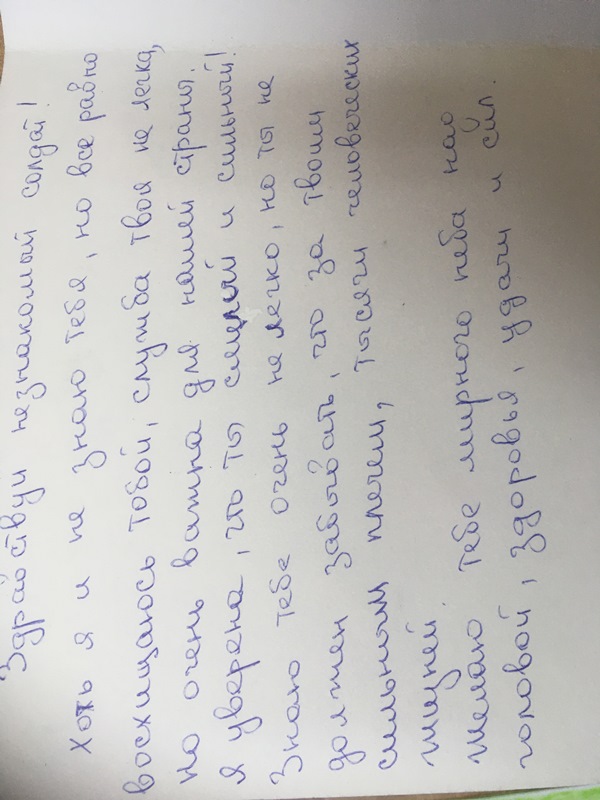 Здравствуй незнакомый солдат!
Хоть я и не знаю тебя, но все равно
восхищаюсь тобой, служба твоя не легка,
но очень важна для нашей страны.
Я уверена, что ты смелый и сильный!
Знаю тебе очень не легко, но ты не
должен забывать, что за твоим
сильным плечем, тысячи человеческих
жизней.
Желаю тебе мирного неба над
головой, здоровья, удачи и сил.